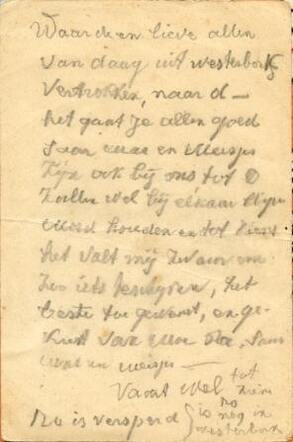 Waarde en lieve allen
van daag uit Westerbork
vertrokken, naar d—
het gaat je allen goed
en meisjes
zijn ook bij ons tot
zullen wel bij elkaar blijven
moed houden en tot ziens
het valt mij zwaar om
zoo iets te schrijven, het
beste toe gewenst, en ge-
kust van
en meisjes —
Vaart wel tot
ziens
No is versperd No
is nog in
westerbork